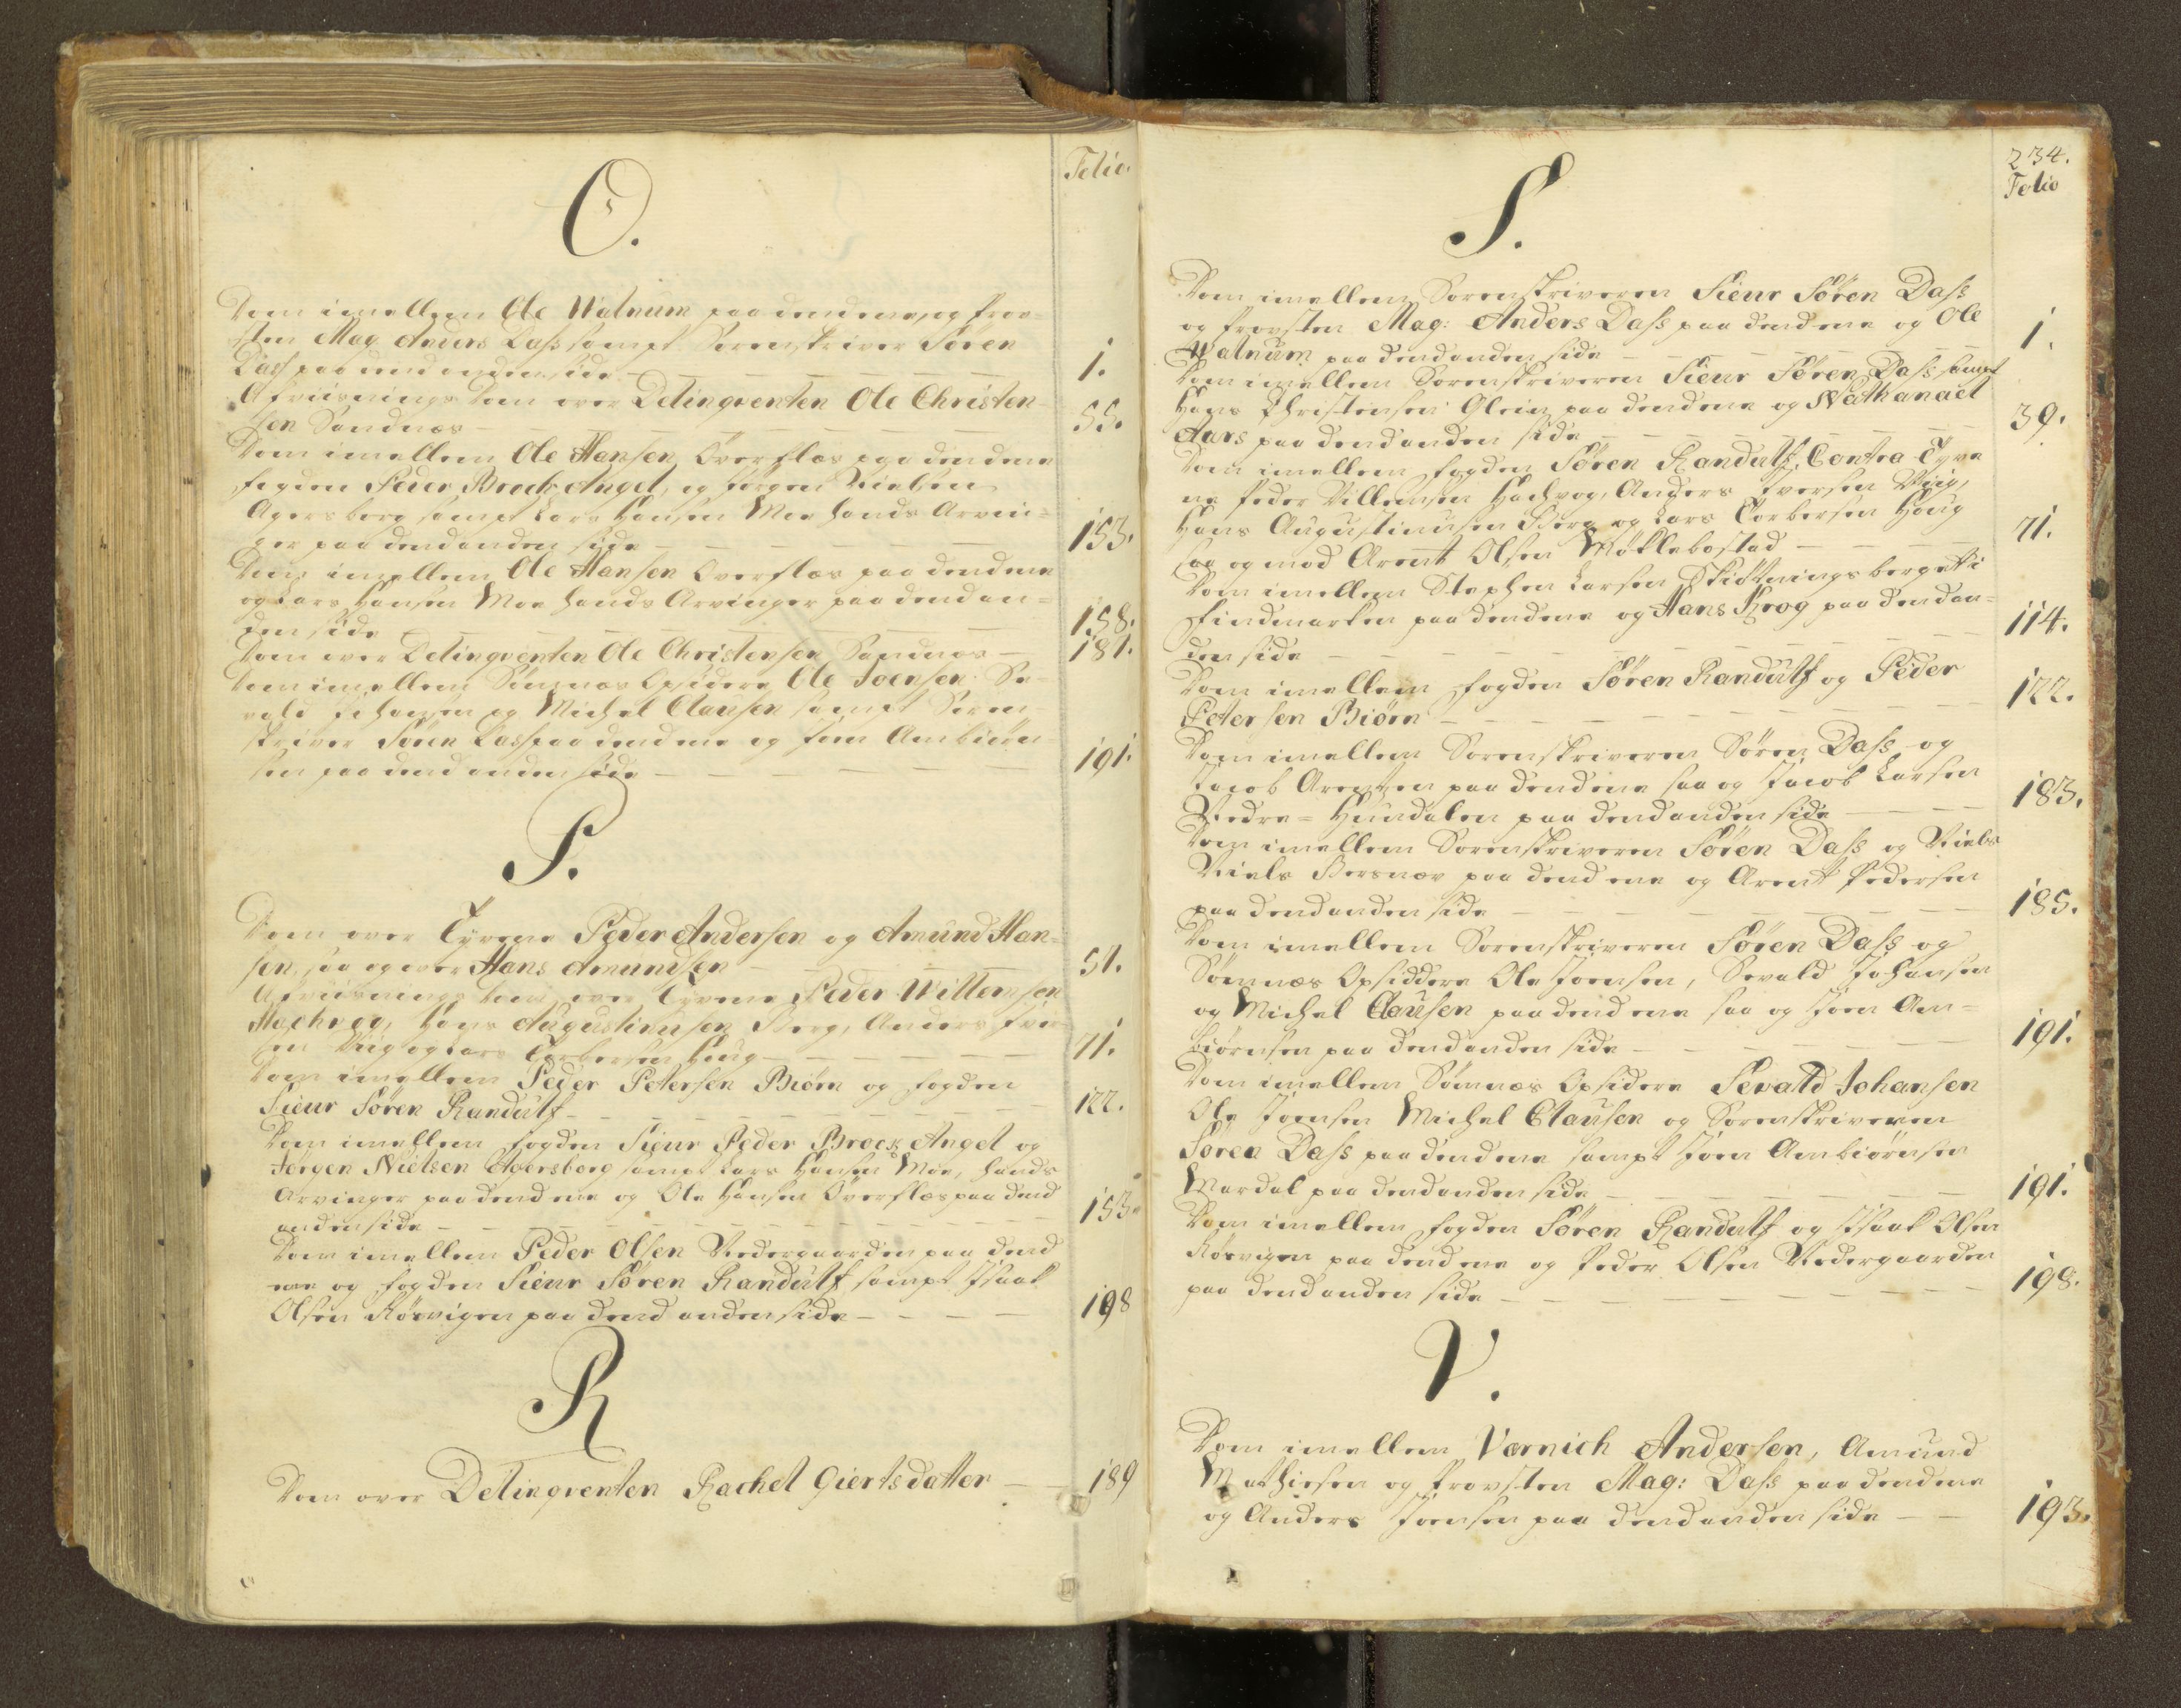 Folio.
O.
Dom imellem Ole Walnum paa dend ene, og Prov-
sten Mag Anders Dass sampt Sorenskriver Søren
Dass paa dend anden side 1.
Afviisnings Dom over Delinqventen Ole Christen-
sen Sandnæs 55.
Dom imellem Ole Hansen Overflæs paa den dene
fogden Peder Brock Angel, og Jørgen Nielsen
Agersborg sampt Lars Hansen Moe hands Arvin-
ger paa dend anden side 153.
Dom imellem Ole Hansen Overflæs paa dend ene
og Lars Hansen Moe hands Arvinger paa dend an-
den side 158.
Dom over Delinqventen Ole Christensen Sandnæs 181.
Dom imellem Sømnæs Opsidere Ole Joensen Se-
vald Johansen og Michel Clausen sampt Soren-
skriver Søren Dass paa dend ene og Joen Ambiørn-
sen paa dend anden side 191.
P.
Dom over Tyvene Peder Andersen og Amund Han-
sen, saa og over Hans Amundsen 51.
Afviisnings Dom over Tyvene Peder Willemsen
Hachvog, Hans Augustinusen Berg, Anders Iver-
sen Viig og Lars Torbersen Houg 71.
Dom imellem Peder Petersen Biørn og fogden
Sieur Søren Randulf 122.
Dom imellem fogden Sieur Peder Brock Angel og
Jørgen Nielsen Agersborg sampt Lars Hansen Moe, hands
Arvinger paa dend ene og Ole Hansen Overflæs paa dend
anden side 153.
Dom imellem Peder Olsen Nedergaarden paa dend
ene og fogden Sieur Søren Randulf sampt Isaak
Olsen Røsvigen paa dend anden side 198
R
Dom over Delinqventen Rachel Giertsdatter 189
234.
Folio
S.
Dom imellem Sorenskriveren Sieur Søren Dass
og Provsten Mag: Anders Dass paa dend ene og Ole
Walnum paa dend anden side 1.
Dom imellem Sorenskriveren Sieur Søren Dass sampt
Hans Christensen Glein paa dend ene og Nathanael
Aars paa dend anden side 39.
Dom imellem fogden Søren Randulf, Contra Tyve
ne Peder Villemsen Hachvog, Anders Iversen Viig,
Hans Augustinusen Berg og Lars Torbersen Houg
saa og mod Arent Olsen Møklebostad 71.
Dom imellem Stephen Larsen Skiøtningsberget i
Findmarken paa dend ene og Hans Krog paa dend an-
den side 114.
Dom imellem fogden Søren Randulf og Peder
Petersen Biørn 122.
Dom imellem Sorenskriveren Søren Dass og
Jacob Arentzen paa dend ene saa og Jacob Larsen
Nedre-Hundalen paa dend anden side 183.
Dom imellem Sorenskriveren Søren Dass og Niels
Niels Bersnæv paa dend ene og Arent Pedersen
paa dend anden side 185.
Dom imellem Sorenskriveren Søren Dass og
Sømnæs Opsiddere Ole Joensen, Sevald Johansen
og Michel Clausen paa dend ene saa og Joen Am-
biørnsen paa dend anden side 191.
Dom imellem Sømnæs Opsidere Sevald Johansen
Ole Joensen Michel Clausen og Sorenskriveren
Søren Dass paa dend ene sampt Joen Ambiørnsen
Mardal paa dend anden side 191.
Dom imellem fogden Søren Randulf og Isaak Olsen
Røsvigen paa dend ene og Peder Olsen Nedergaarden
paa dend anden side 198.
V.
Dom imellem Værnich Andersen, Amund
Mathiesen og Provsten Mag: Dass paa dend ene
og Anders Joensen paa dend anden side 193.